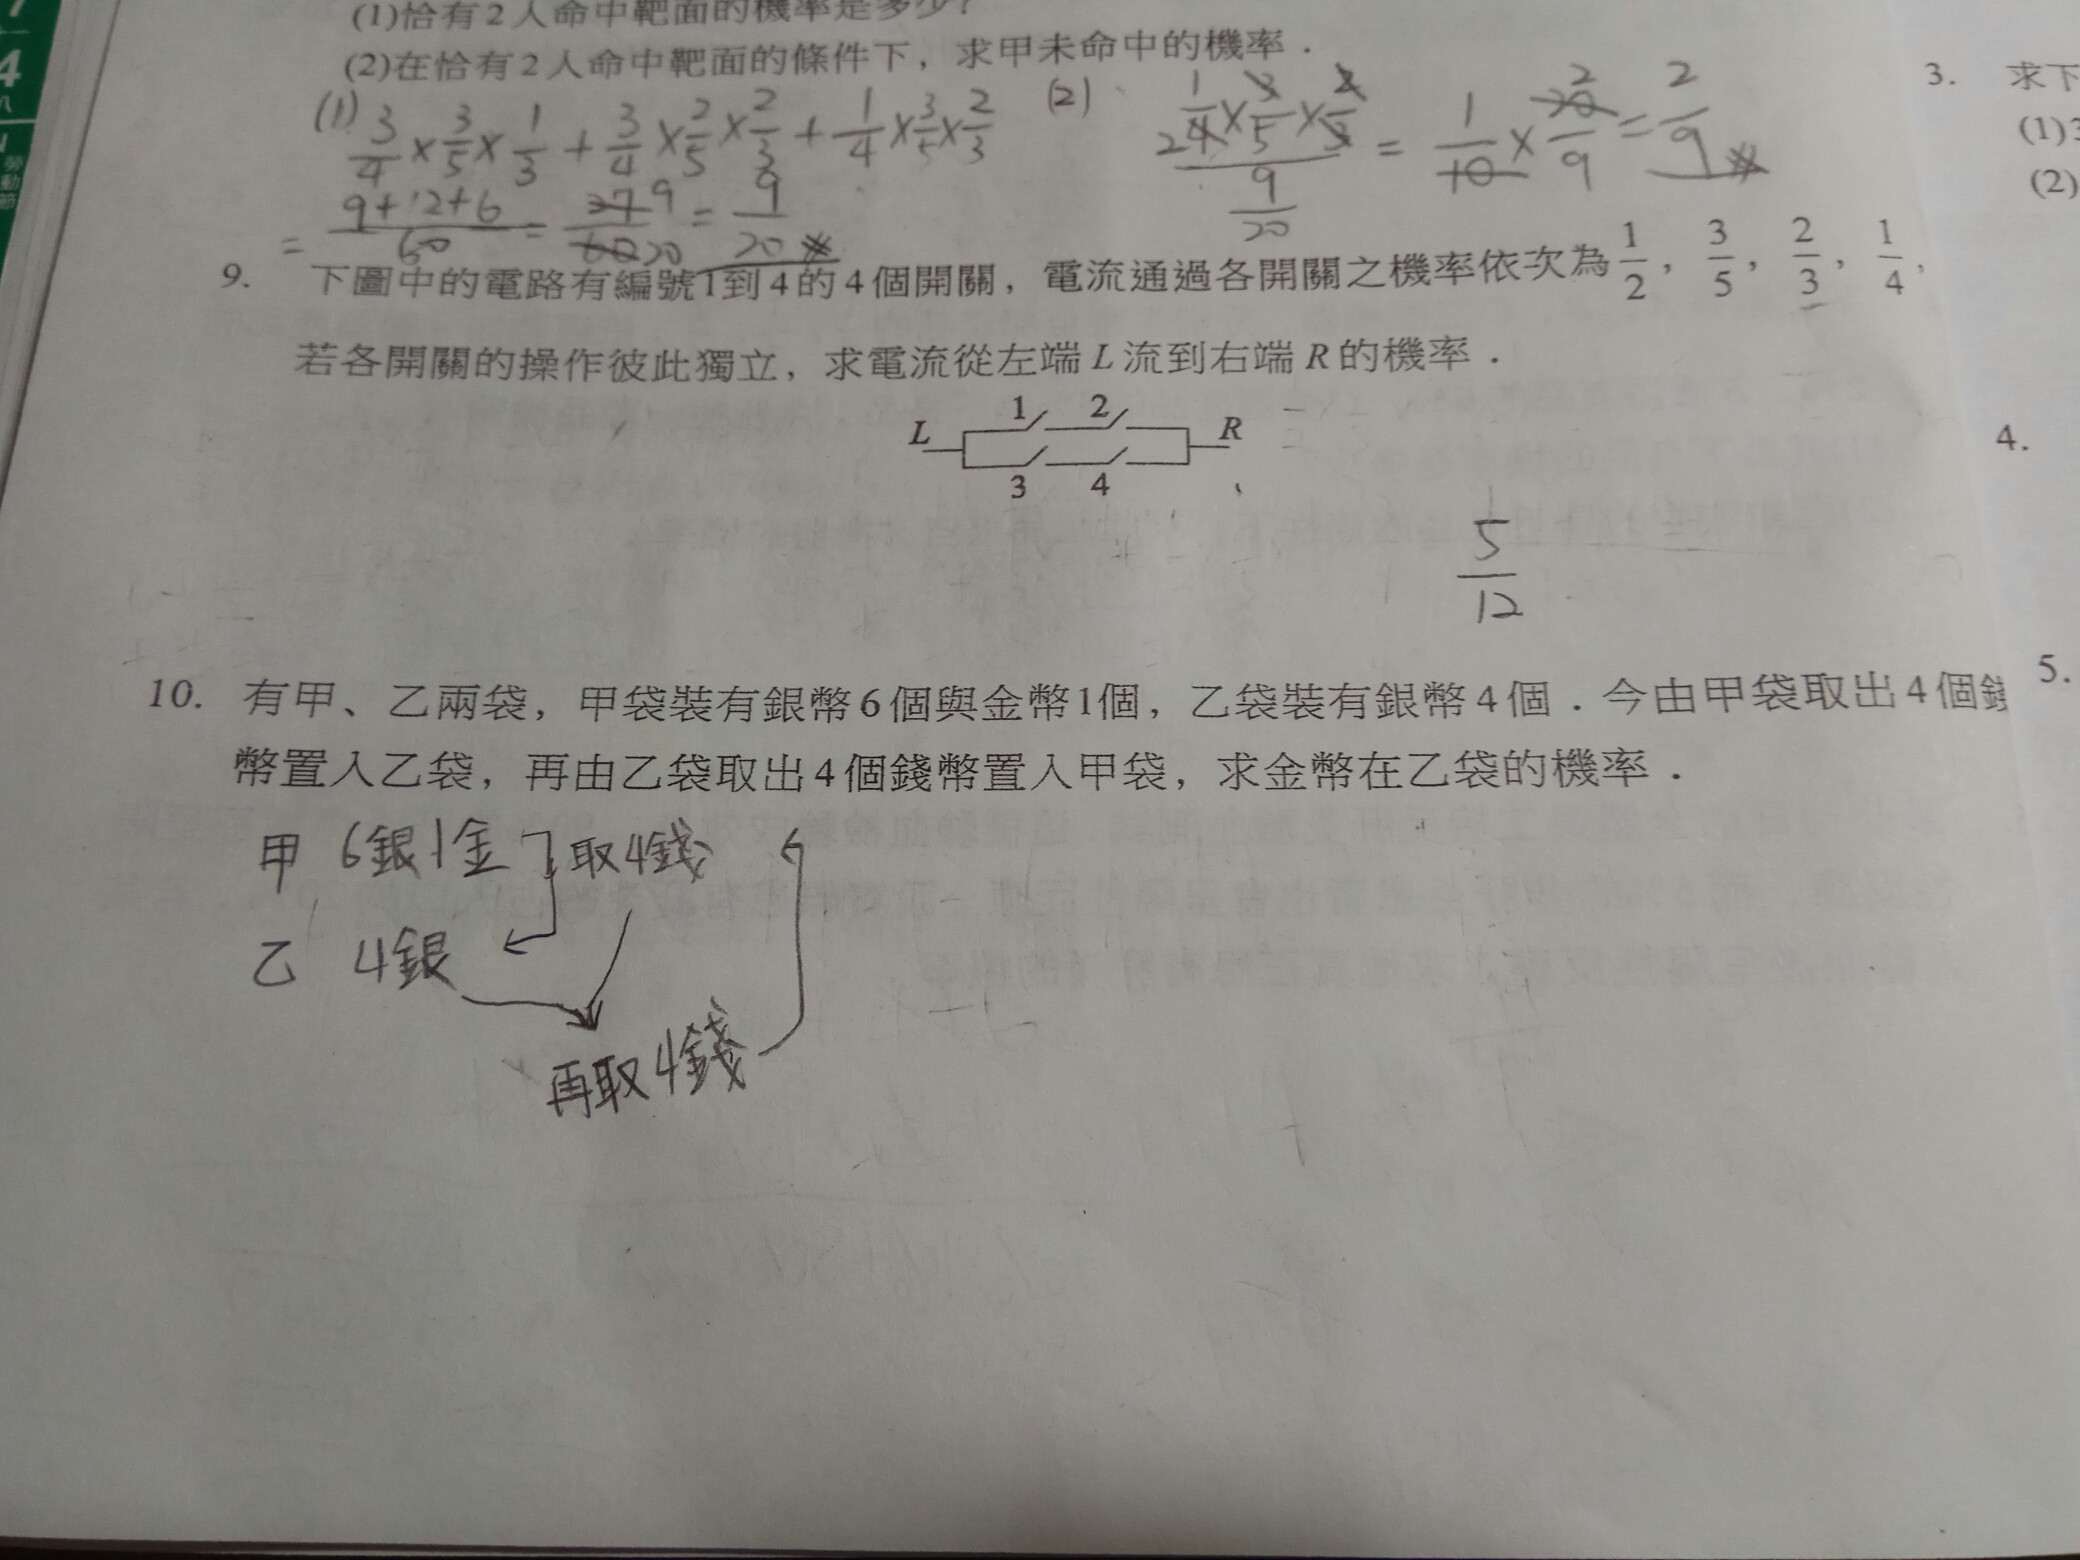 7
4
八
勞
動
節
(1)恰有2人命中靶面的機率是多少?
(2)在恰有2人命中靶面的條件下，求甲未命中的機率．
(1) 3/4 × 3/5 × 1/3 + 3/4 × 2/5 × 2/3 + 1/4 × 3/5 × 2/3
= 9+12+6/60 = 27 9/60 20 = 9/20 #
(2) 1/4 × 3/5 × 2/3 / 9/20 = 1/10 × 20 2/9 = 2/9 #
9. 下圖中的電路有編號1到4的4個開關，電流通過各開關之機率依次為 1/2，3/5，2/3，1/4，
若各開關的操作彼此獨立，求電流從左端L流到右端R的機率．
1 2
L R
3 4
5/12
10. 有甲、乙兩袋，甲袋裝有銀幣6個與金幣1個，乙袋裝有銀幣4個．今由甲袋取出4個錢
幣置入乙袋，再由乙袋取出4個錢幣置入甲袋，求金幣在乙袋的機率．
甲 6銀1金 取4錢
乙 4銀
再取4錢
3. 求下
(1)3
(2)
4.
5.